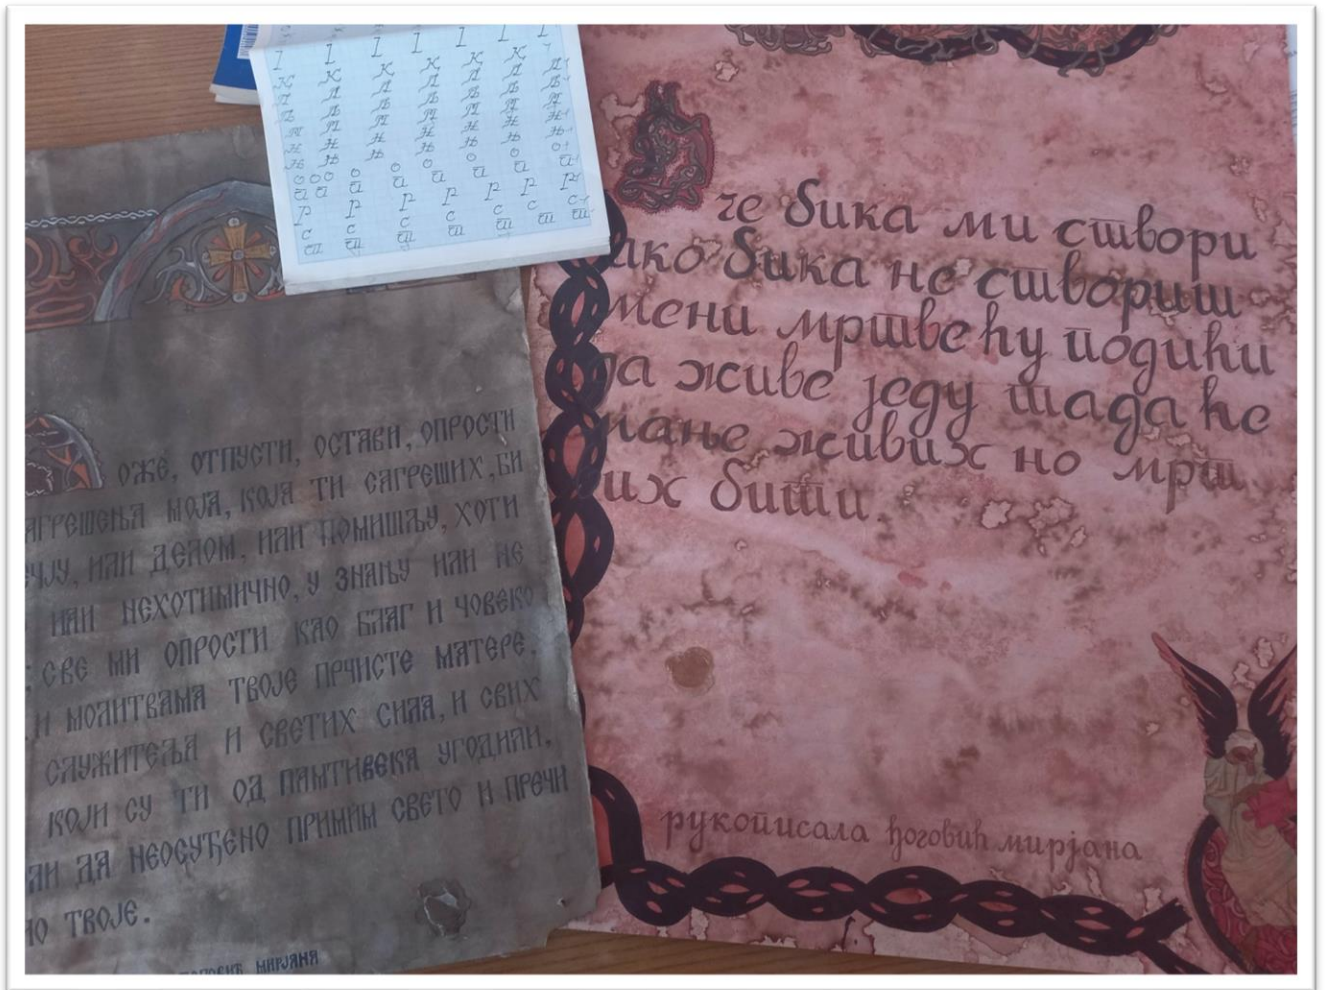 І І І І І І
К К К К К К
Л Л Л Л Л Л
Љ Љ Љ Љ Љ Љ
М М М М М М
Н Н Н Н Н Н
Њ Њ Њ Њ Њ Њ
О О О О О О О О
П П П П П П П
Р Р Р Р Р Р Р
С С С С С С
Т Т Т Т Т Т
ОЖЕ, ОТПУСТИ, ОСТАВИ, ОПРОСТИ
АГРЕШЕЊА МОЈА, КОЈА ТИ САГРЕШИХ, БИ
ЕЧЈУ, ИЛИ ДЕЛОМ, ИЛИ ПОМИШЉУ, ХОТИ
ИЛИ НЕХОТИМИЧНО, У ЗНАЊУ ИЛИ НЕ
СВЕ МИ ОПРОСТИ КАО БЛАГ И ЧОВЕКО
И МОЛИТВАМА ТВОЈЕ ПРЧИСТЕ МАТЕРЕ,
СЛУЖИТЕЉА И СВЕТИХ СИЛА, И СВИХ
КОЈИ СУ ТИ ОД ПАМТИВЕКА УГОДИЛИ,
ЛИ ДА НЕОСУЂЕНО ПРИМИМ СВЕТО И ПРЕЧИ
ЛО ТВОЈЕ.
МИРЈАНА
че бика ми створи
ако бика не створиш
мени мртве ћу подићи
да живе једу тада ће
мање живих но мрт
их бити
рукописала ђоговић мирјана